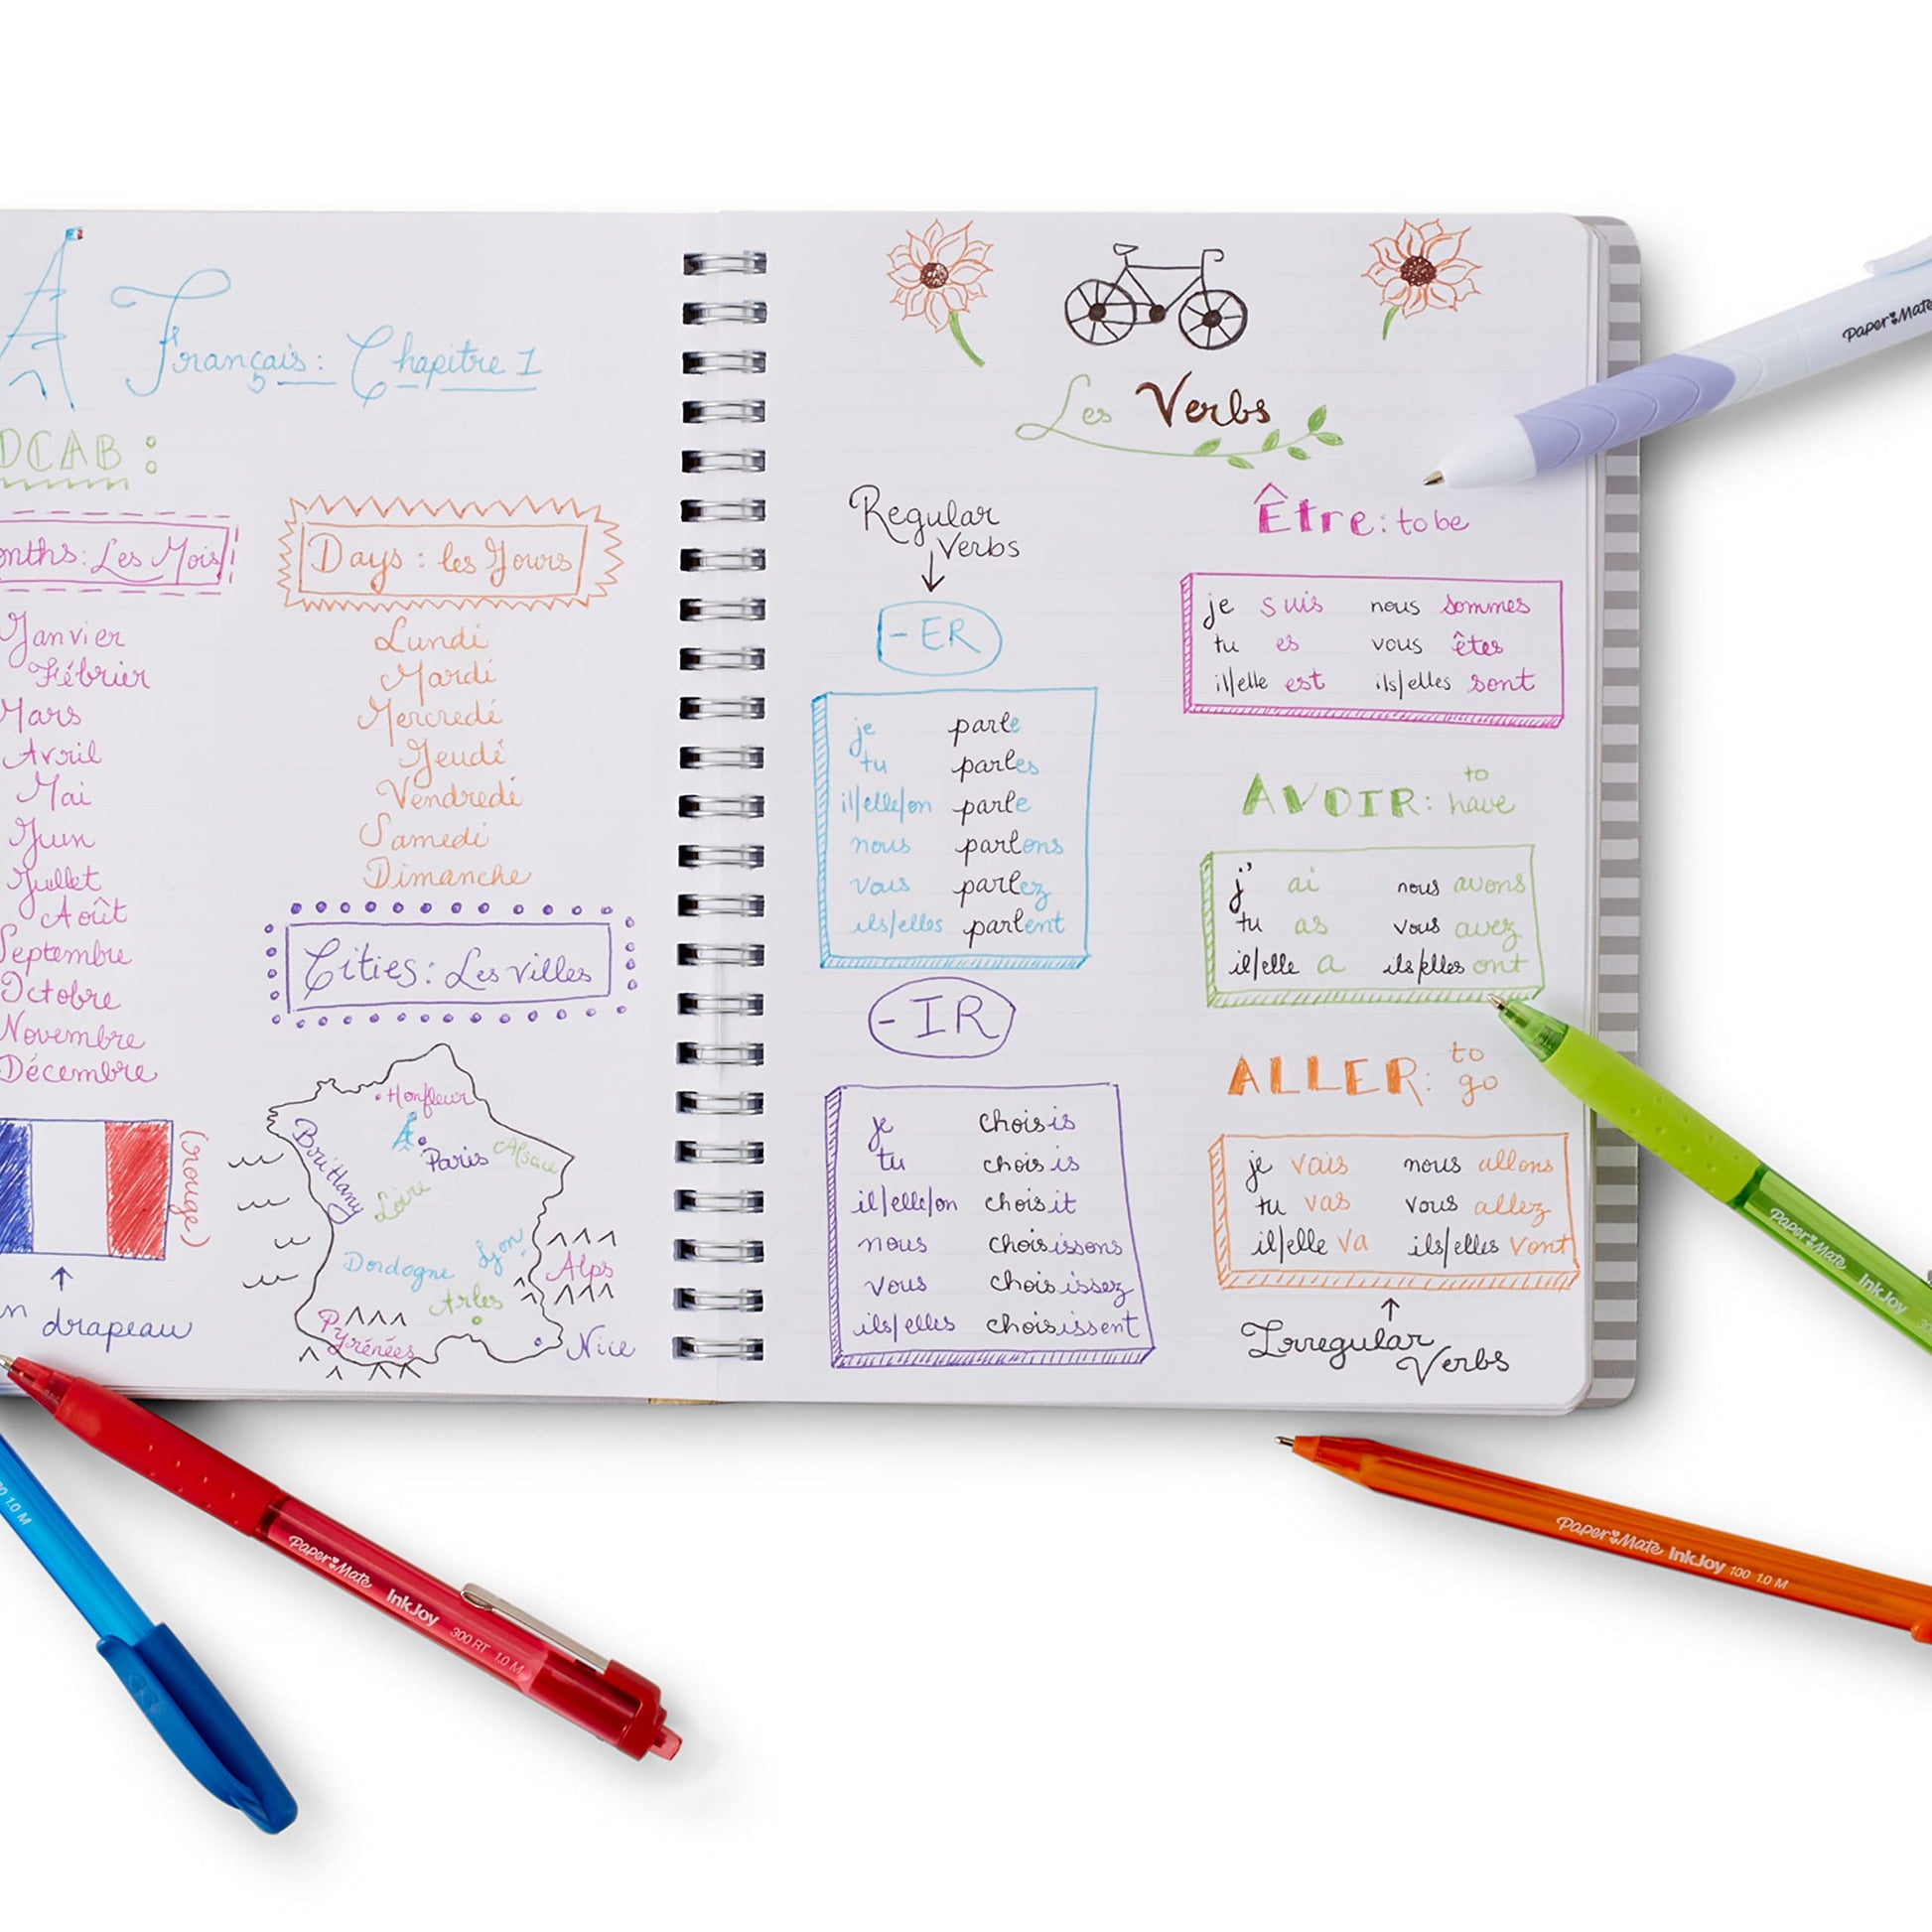 Français: Chapitre 1
OCAB:
onths: Les Mois
Janvier
Fébrier
Mars
Avril
Mai
Juin
Juillet
Août
Septembre
Octobre
Novembre
Décembre
(rouge)
n drapeau
Days: les Jours
Lundi
Mardi
Mercredi
Jeudi
Vendredi
Samedi
Dimanche
Cities: Les villes
Honfleur
Paris
Alsace
Brittany
Loire
Dordogne
Lyon
Alps
Arles
Pyrénées
Nice
Les Verbs
Regular
Verbs
-ER
je parle
tu parles
il/elle/on parle
nous parlons
vous parlez
ils/elles parlent
-IR
je choisis
tu choisis
il/elle/on choisit
nous choisissons
vous choisissez
ils/elles choisissent
Être: to be
je suis nous sommes
tu es vous êtes
il/elle est ils/elles sont
AVOIR: to have
j' ai nous avons
tu as vous avez
il/elle a ils/elles ont
ALLER: to go
je vais nous allons
tu vas vous allez
il/elle va ils/elles vont
Irregular
Verbs
Paper Mate
Paper Mate InkJoy
Paper Mate InkJoy 100 1.0 M
Paper Mate InkJoy 300 RT 1.0 M
1.0 M